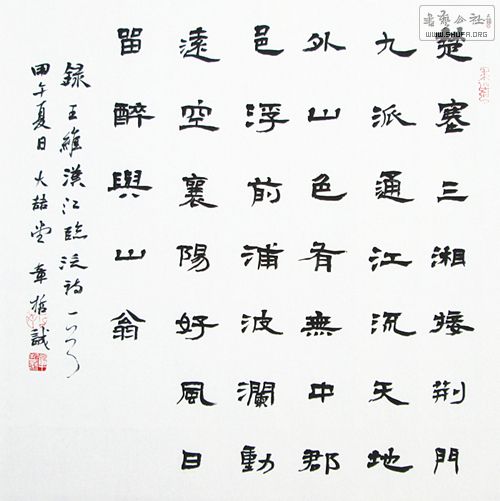 楚塞三湘接荆門
九派通江流天地
外山色有無中郡
邑浮前浦波瀾動
遠空襄陽好風日
留醉與山翁
録王維漢江臨泛詩一首
甲午夏日大喆堂章哲誠
書藝公社
WWW.SHUFA.ORG